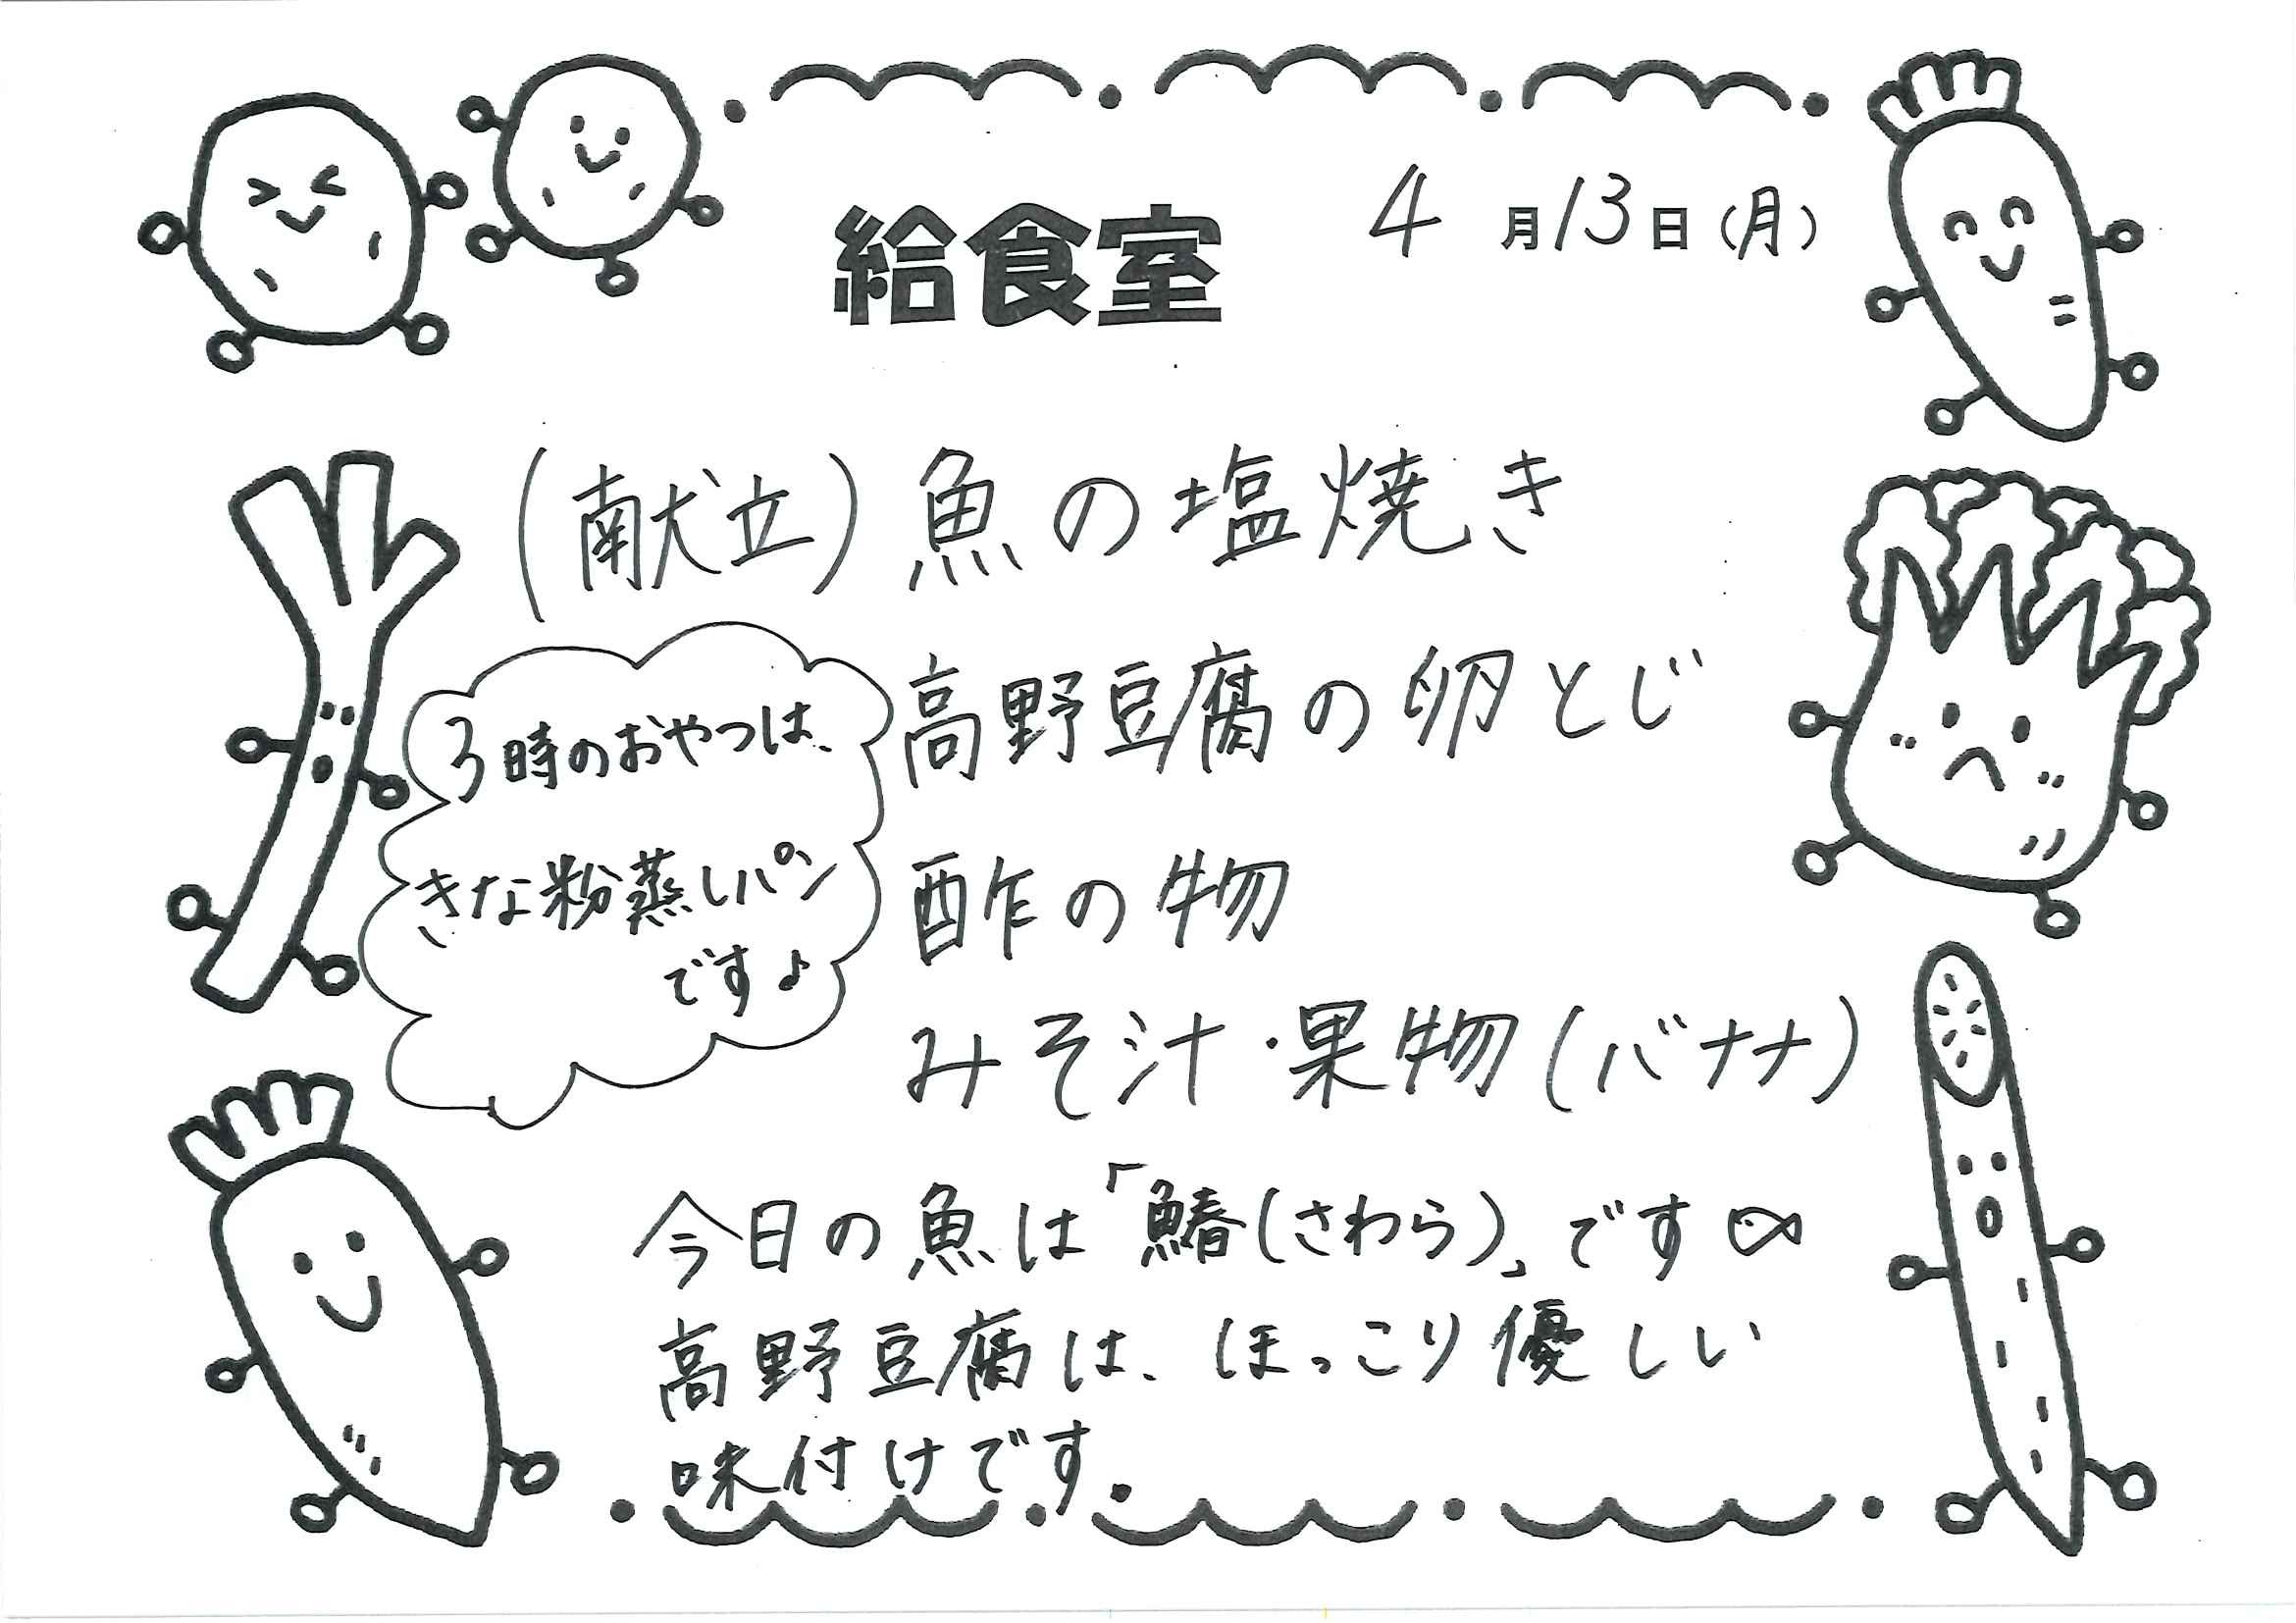 給食室
4月13日(月)
(献立)魚の塩焼き
高野豆腐の卵とじ
酢の物
みそ汁・果物(バナナ)
3時のおやつは、
きな粉蒸しパン
です♪
今日の魚は「鰆(さわら)」です
高野豆腐は、ほっこり優しい
味付けです.